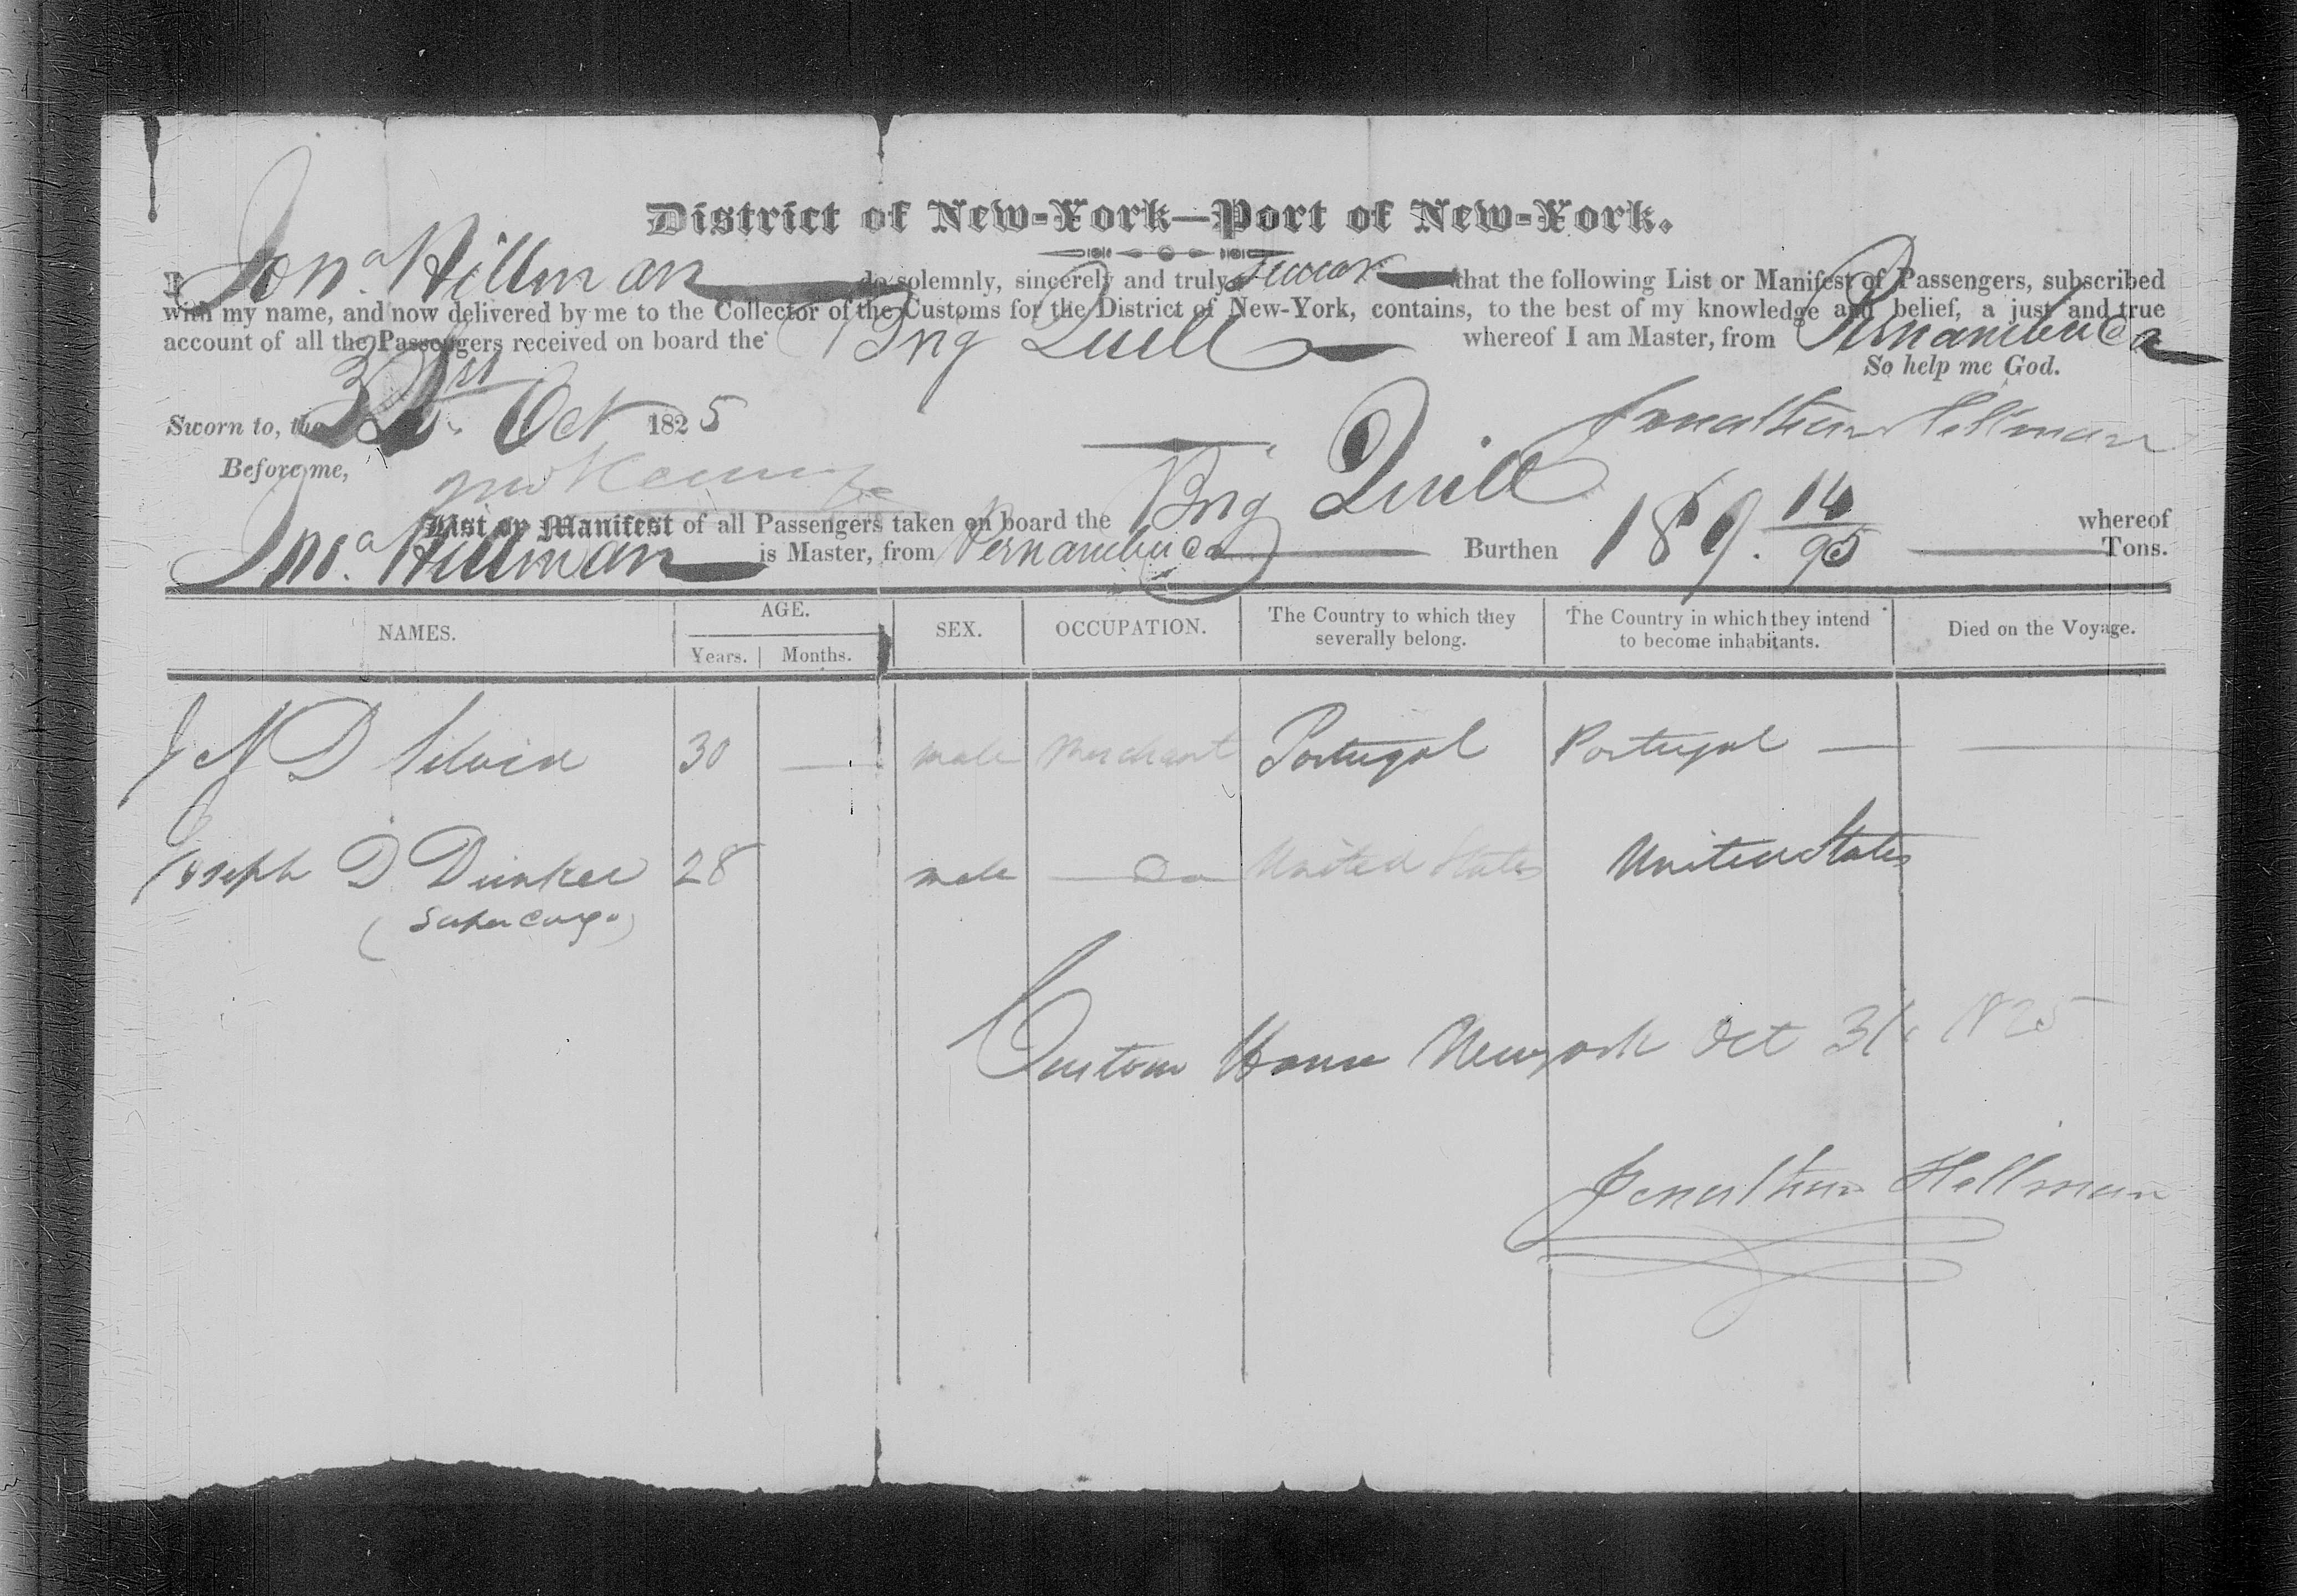 District of New-York—Port of New-York.
I Jonª Hillman do solemnly, sincerely and truly swear that the following List or Manifest of Passengers, subscribed
with my name, and now delivered by me to the Collector of the Customs for the District of New-York, contains, to the best of my knowledge and belief, a just and true
account of all the Passengers received on board the Brig Quill whereof I am Master, from Pernambuco
So help me God.
Sworn to, the 31st Oct 1825
Jonathan Hillman
Before me,
List or Manifest of all Passengers taken on board the Brig Quill whereof
Jonª Hillman is Master, from Pernambuco Burthen 189. 14/95 Tons.
NAMES. AGE. SEX. OCCUPATION. The Country to which they severally belong. The Country in which they intend to become inhabitants. Died on the Voyage.
Years. Months.
J M D Silvia 30 — male Merchant Portugal Portugal — —
Joseph D 28 male Do United States United States
(Supercargo)
Custom House New york Oct 31 1825
Jonathan Hillman